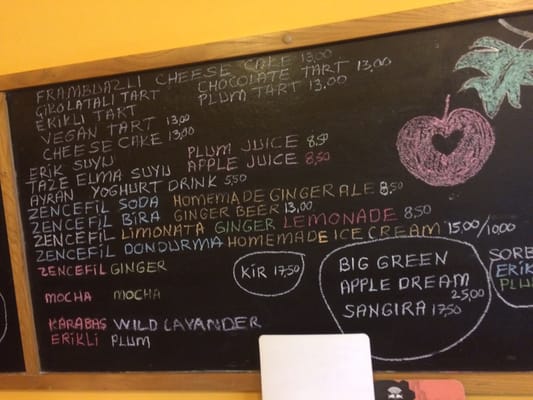 FRAMBUAZLI CHEESE CAKE 13,00
ÇIKOLATALI TART CHOCOLATE TART 13,00
ERIKLI TART PLUM TART 13,00
VEGAN TART 13,00
CHEESE CAKE 13,00
ERIK SUYU PLUM JUICE 8,50
TAZE ELMA SUYU APPLE JUICE 8,50
AYRAN YOGHURT DRINK 5,50
ZENCEFIL SODA HOMEMADE GINGER ALE 8,50
ZENCEFIL BIRA GINGER BEER 13,00
ZENCEFIL LIMONATA GINGER LEMONADE 8,50
ZENCEFIL DONDURMA HOMEMADE ICE CREAM 15,00/10,00
ZENCEFIL GINGER
MOCHA MOCHA
KARABAŞ WILD LAVANDER
ERIKLI PLUM
KIR 17,50
BIG GREEN
APPLE DREAM
25,00
SANGIRA 17,50
SORB
ERIK
PLUM